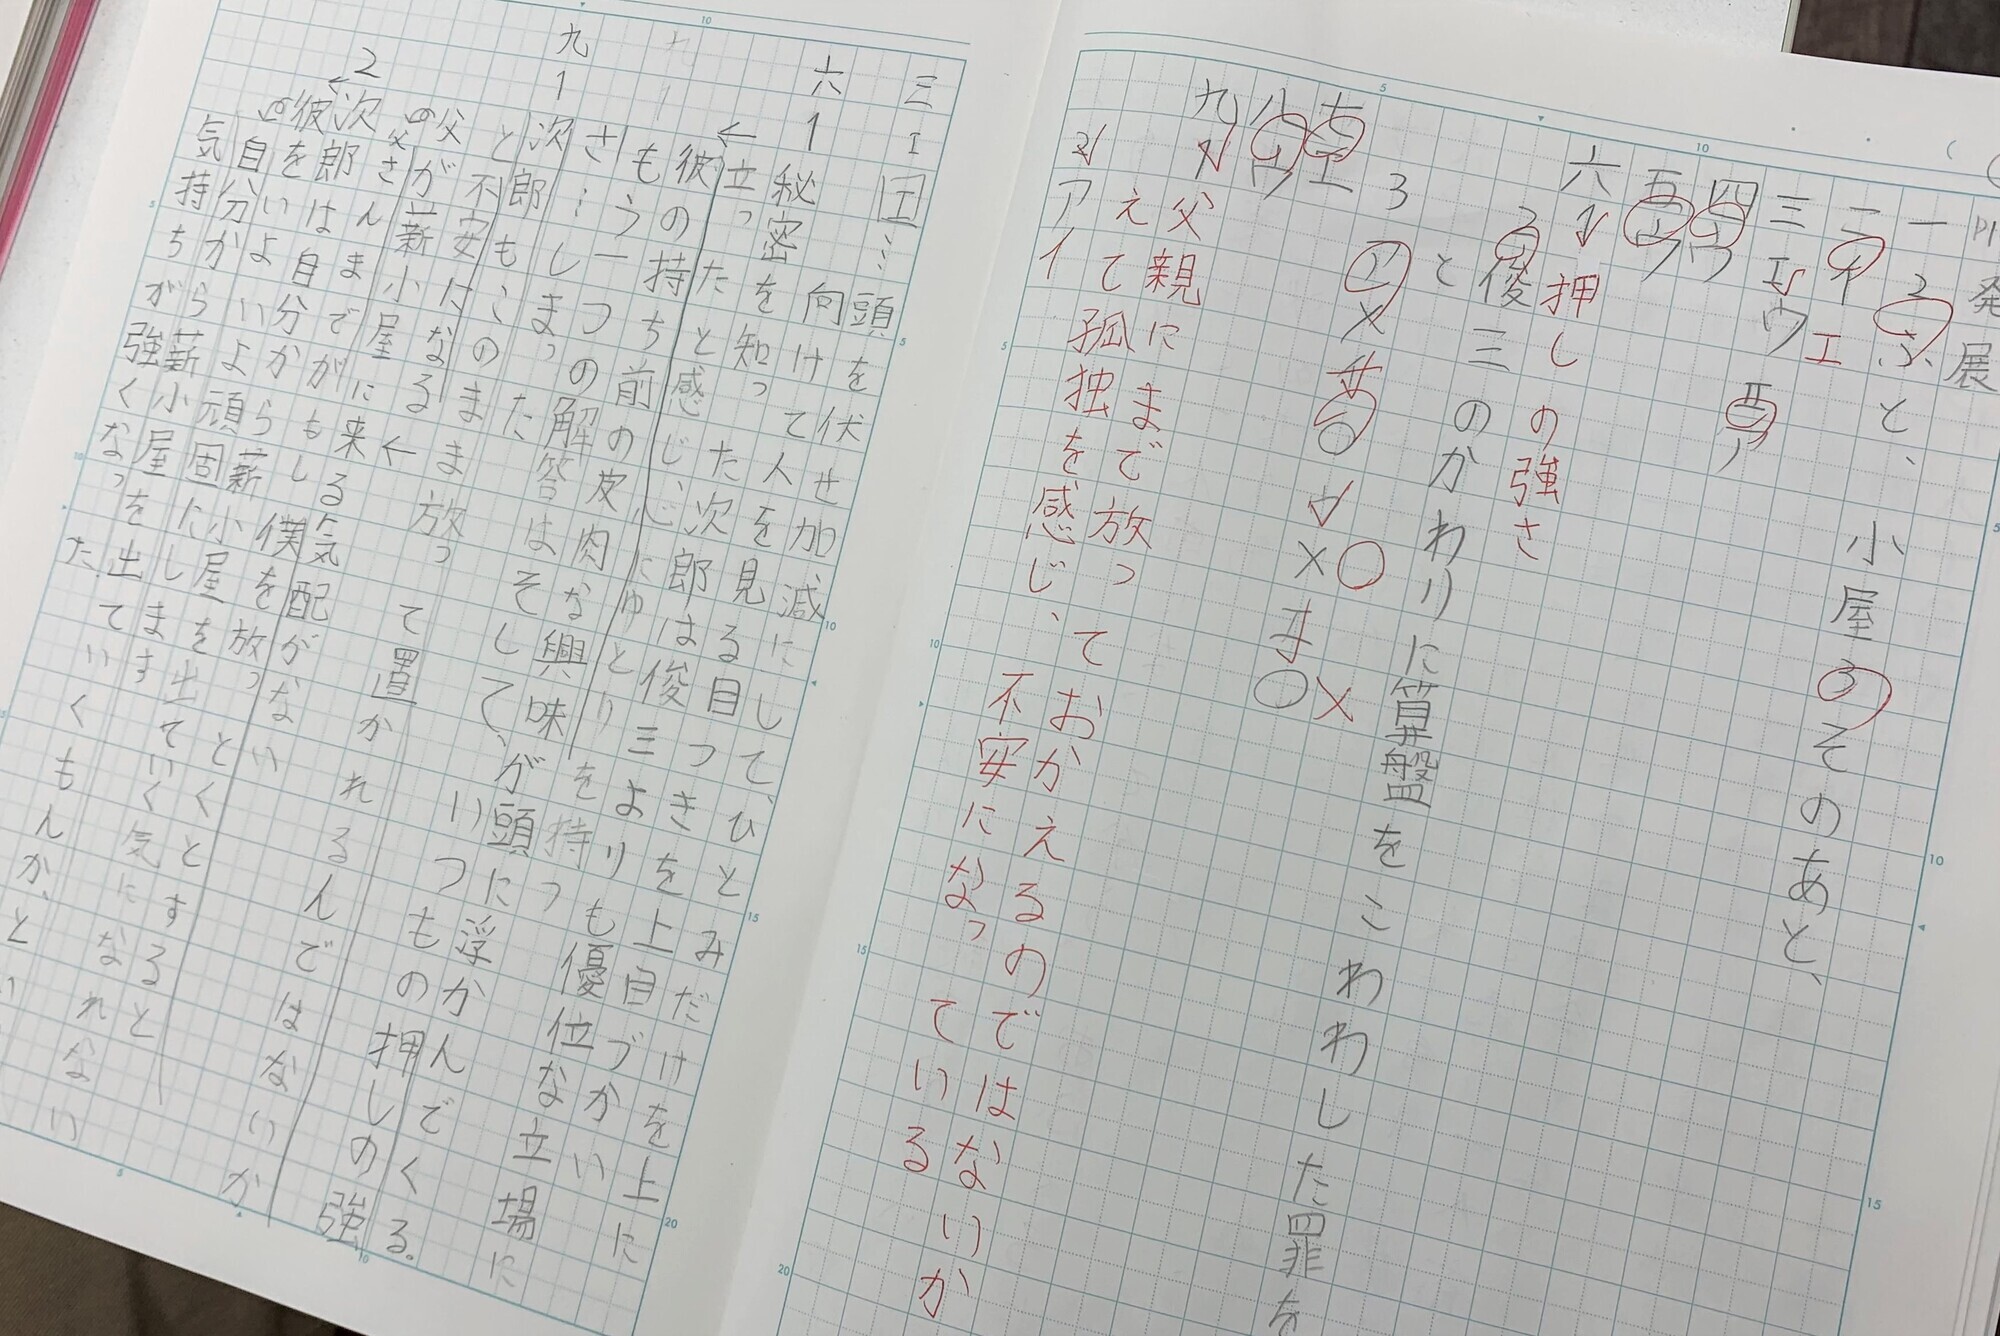 発展
一 2 ふと、小屋のそのあと、
二 イ
三 エ ウ エ
四 ウ
五 ウ
ア
六 1 押しの強さ
2 俊三のかわりに算盤をこわわした罪を
と
3
ア × イ ○ ウ × ○ エ ○ ×
七 エ
八 ウ
九 1 父親にまで放っておかえるのではないか
2 ア え
イ て孤独を感じ、不安になっている
三 エ エ…頭を伏せ加減にして、ひとみだけを上に
向けて人を見る目つき
六 1 秘密を知った次郎は俊三よりも上
← 立ったと感じ、心にゆとりを持つ
彼の持ち前の皮肉な興味が頭に浮かんでくる。
もう一つの解答はそして、いつもの押しの強
さ…しまった
九 1 次郎もこのまま放って置かれるんではないか
と不安になる←
父が薪小屋に来る気配がない
の
父さんまでがもし僕を放っとくとすると
2 次郎は自分から薪小屋を出ていく気になれない
←
彼をいよいよ頑固にします
の
自分から薪小屋を出ていくもんか、と
気持ちが強くなった